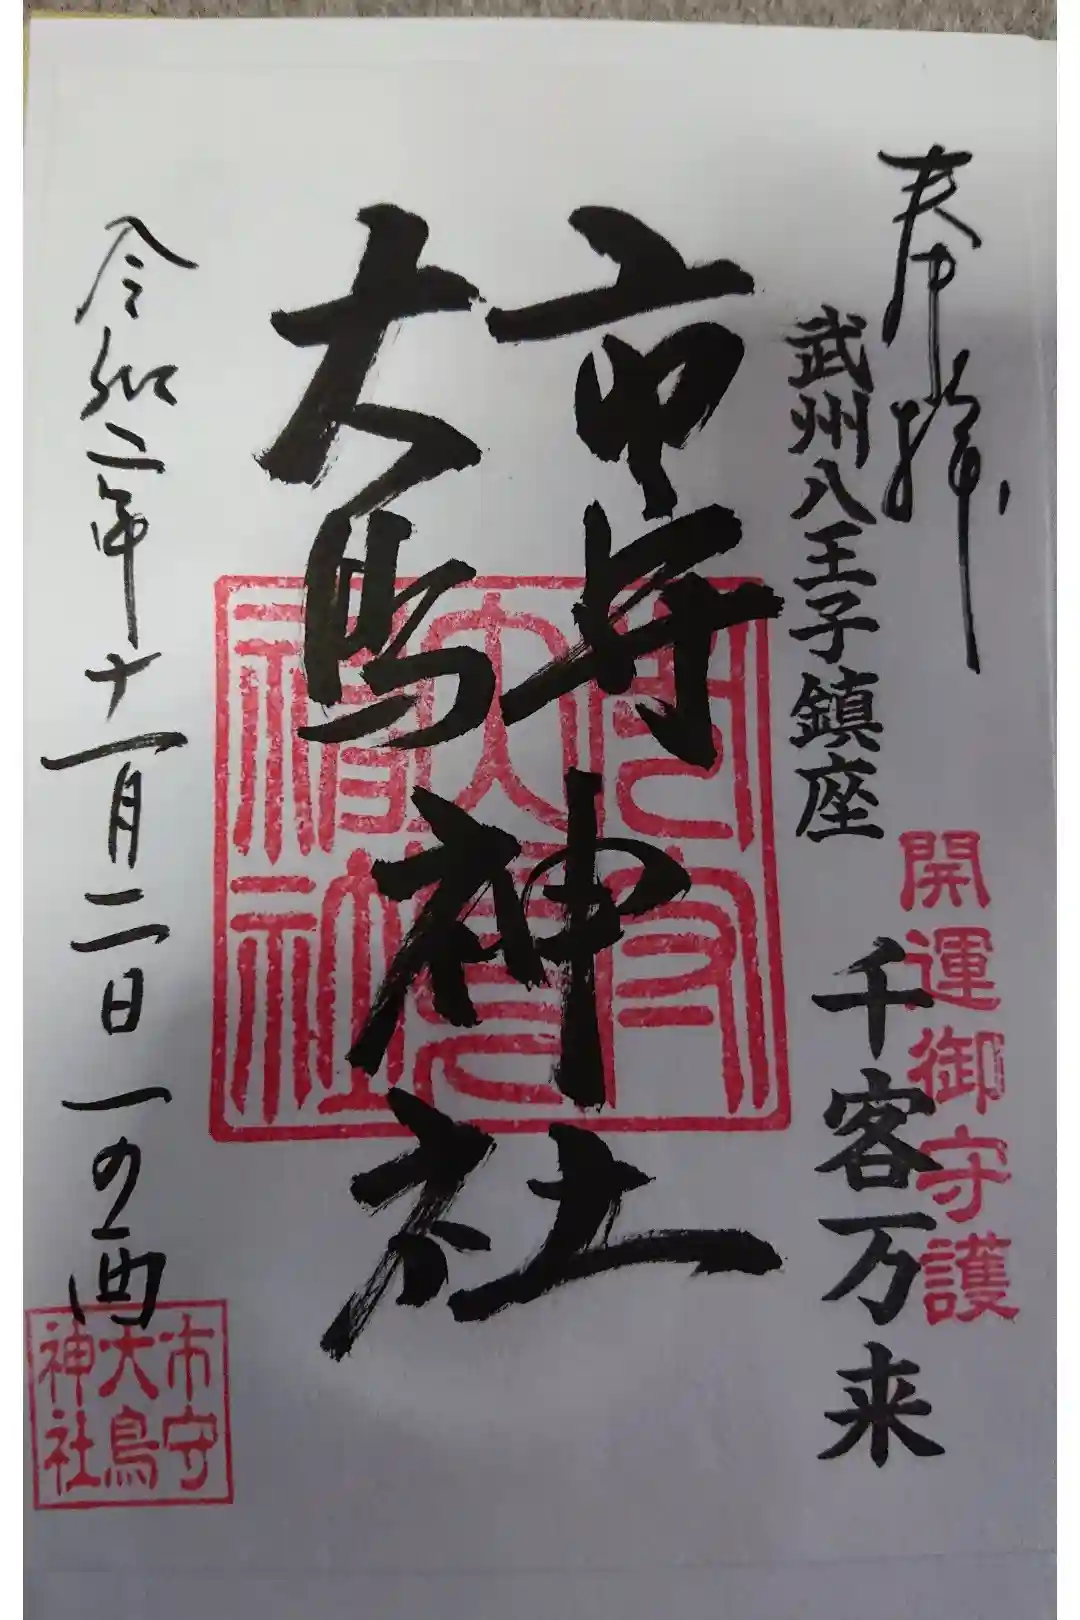 奉拝
開運御守護
武州八王子鎮座
千客万来
市守
大鳥
神社
令和二年十一月二日一の酉
市守
大鳥
神社
市守
大鳥
神社